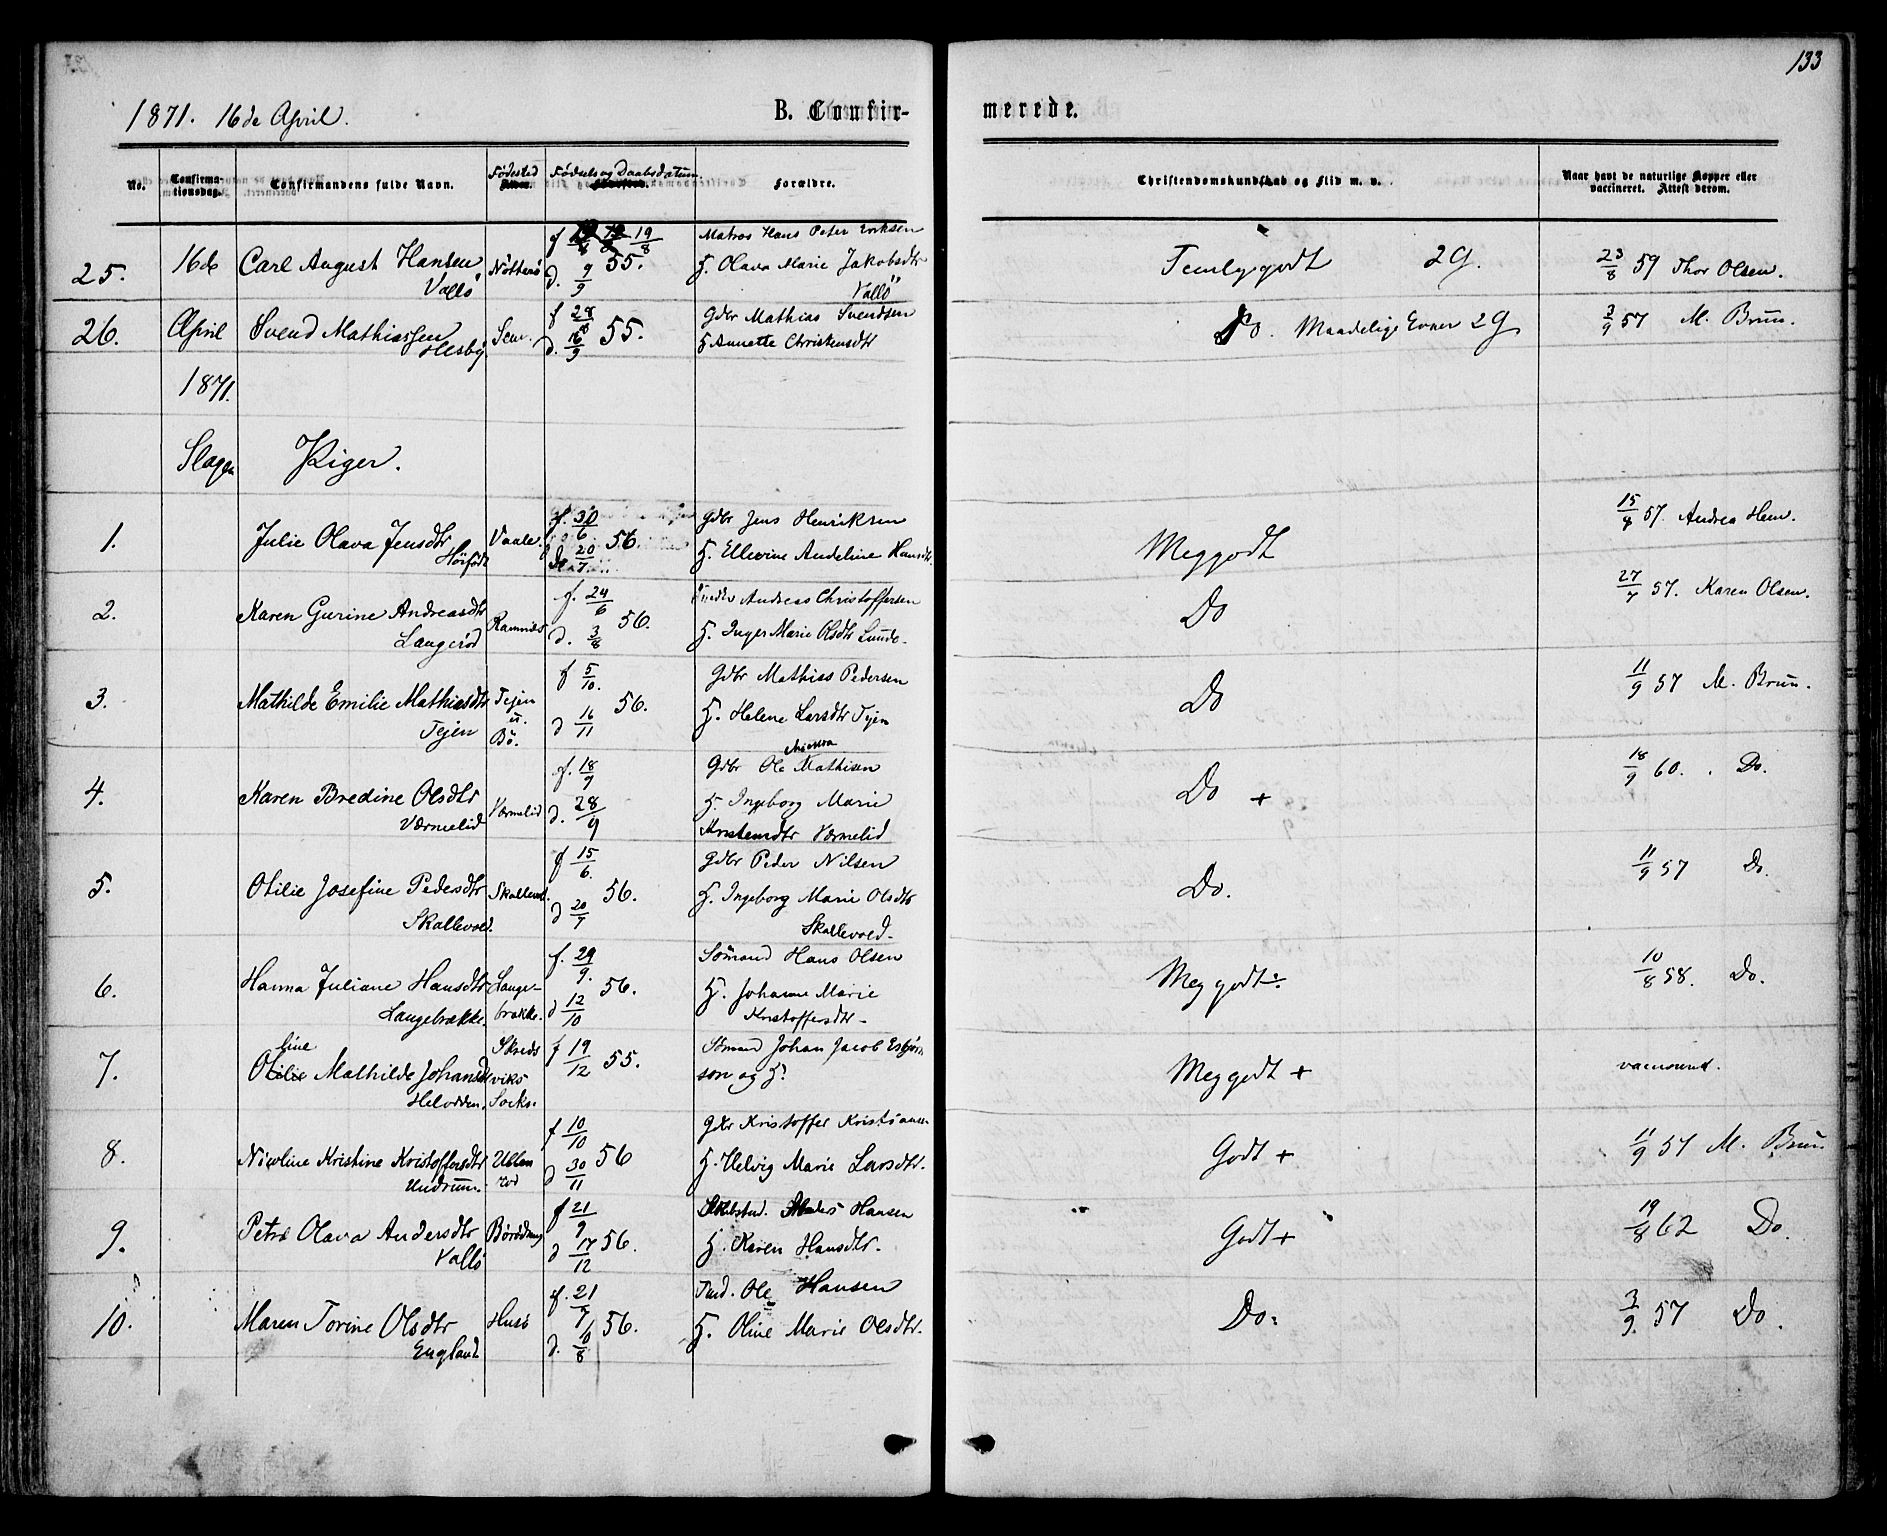 133
1871. 16de April.
B. Confirmerede.
No. Confirmationsdag. Confirmandens fulde Navn. Fødested Fødsels og Daabsdatum. Forældre. Christendomskundskab og Flid m. v. Naar havt de naturlige Kopper eller vaccineret. Attest derom.
25. 16de Carl August Hansen Vallö Nötterö f 19/8 d. 9/9 55. Matros Hans Peter Eriksen H. Olava Marie Jakobsdtr Vallö Temlig godt 2g. 23/8 59 Thor Olsen.
26. April Svend Mathiassen Hesby Sem. f 28/8 d. 16/9 55. Gdbr Mathias Svendsen H Annette Christensdtr Do. Maadelige Evner 2g 3/9 57 M. Brun.
1871.
Slagen Piger.
1. Julie Olava Jensdtr Vaale. f. 30/6 d 20/7 56. Gdbr Jens Henriksen H. Ellevine Andeline Hansdtr. Meg godt 15/8 57. Andrea Hem.
2. Karen Gurine Andreasdtr Langerød Ramnæs f. 24/6 d. 3/8 56. Andreas Christoffersen H. Inger Marie Olsdtr Lunde. Do 27/7 57. Karen Olsen.
3. Mathilde Emilie Mathiasdtr Tejen Tejen u. Bö. f 5/10. d 16/11 56. Gdbr Mathias Pedersen H. Helene Larsdtr Tejen Do 11/9 57 M. Brun.
4. Karen Bredine Olsdtr Værmelid Værmelid f. 18/9 d. 28/9 Gdbr Ole Mathisen H. Ingeborg Marie Kristensdtr Værmelid Do + 18/9 60. Do.
5. Otilie Josefine Pedersdtr Skallevold. Skallevold. f 15/6. d 20/7 56. Gdbr Peder Nilsen H. Ingeborg Marie Olsdtr Skallevold. Do. 11/9 57 Do.
6. Hanna Juliane Hansdtr Langebrække. Langebrække. f. 29/9. d 12/10 56. Sömand Hans Olsen H. Johanne Marie Kristoffersdtr. Meg godt÷ 10/8 58. Do.
7. Otilie line Mathilde Johansd Helvdden. Skredsviks Socks. f 19/12 55. Sömand Johan Jacob Esbjörnson og H? Meg godt + vaccinered.
8. Nicoline Kristine Kristoffersdtr Undrum. Ullenrød f 10/10 d 30/11 56 Gdbr Kristoffer Kristiansen H. Helvig Marie Larsdtr. Godt + 11/9 57 M. Brun
9. Petra Olava Andersdtr Vallö f 21/9 d 17/12 56. Anders Hansen H. Karen Hansdtr. Godt + 19/8 62 Do.
10. Maren Torine Olsdtr England Husö f. 21/7 d. 6/8 56. Ind. Ole Hansen H. Oline Marie Olsdtr. Do. 3/9. 57 Do.